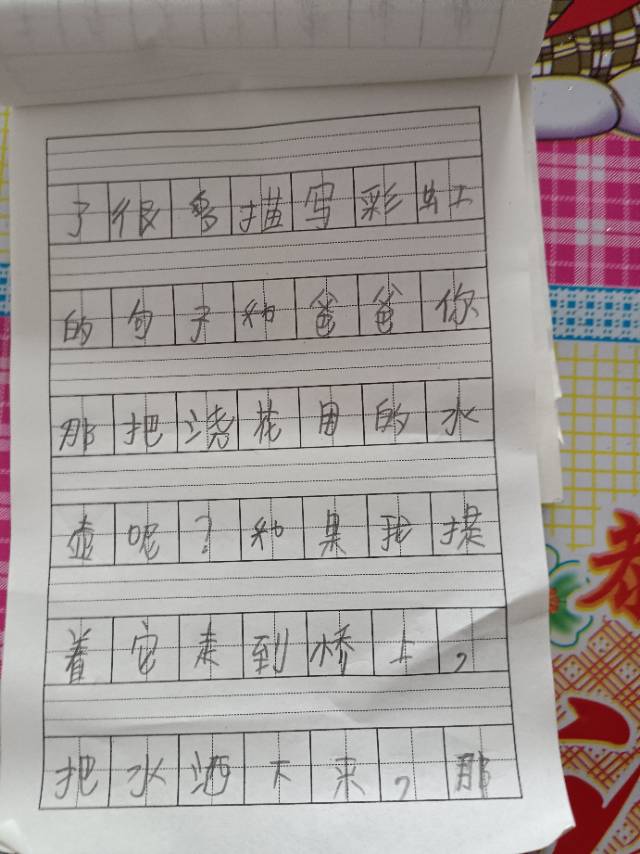 了很多描写彩虹
的句子和爸爸你
那把浇花用的水
壶呢？和果我提
着它走到桥上，
把水洒下来，那